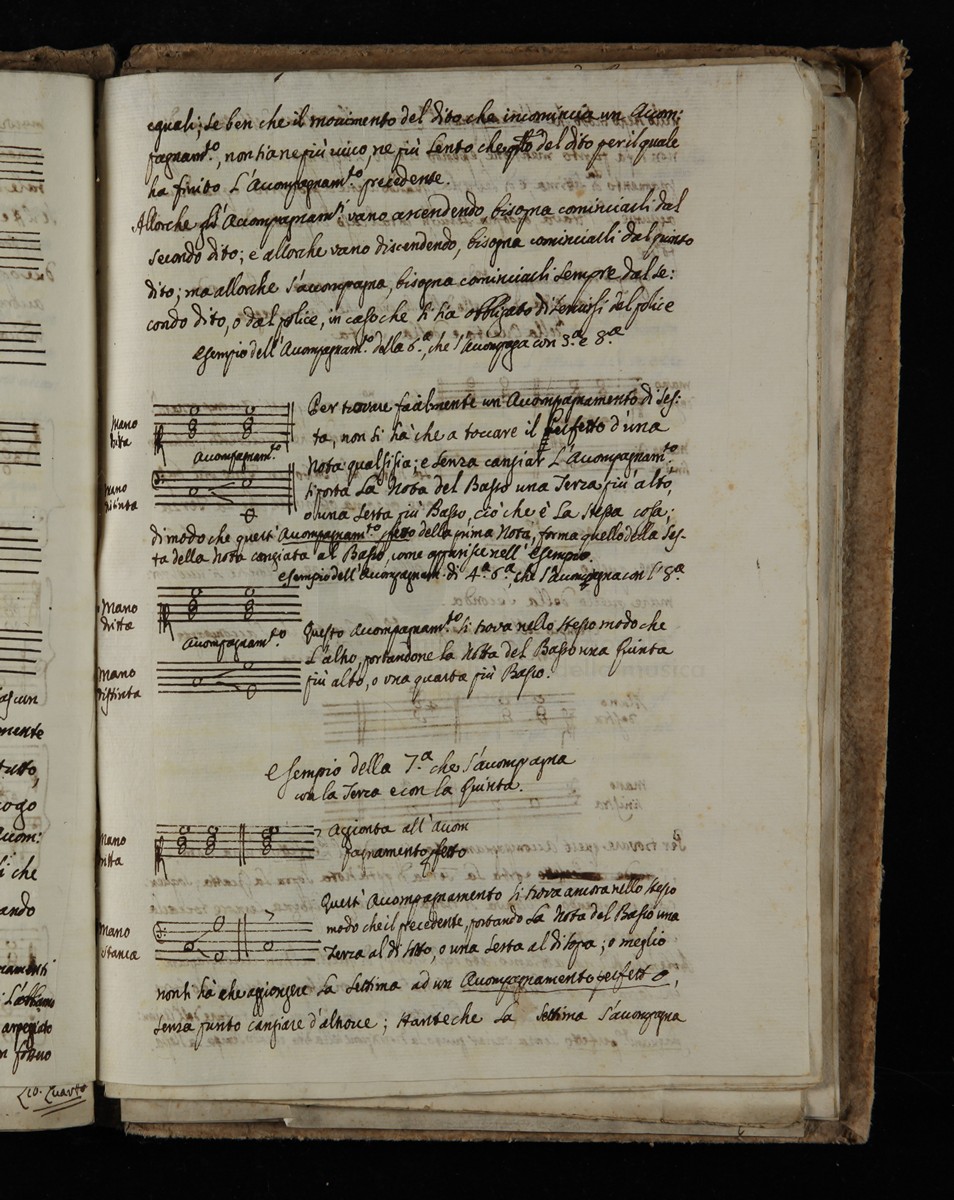 equali; se ben che il movimento del dito che incomincia un Accom:
pagnam.to, non sia ne più vivo, ne più Lento che q.to del dito per il quale
ha finito L'Accompagnam.to precedente.
Allorche gli Accompagnam.ti vano ascendendo, bisogna cominciarli dal
secondo dito; e allorche vano discendendo, bisogna cominciarli dal quinto
dito; ma allorche s'accompagna, bisogna cominciarli sempre dal se:
condo dito, o dal police, in caso che si sia obbligato di servirsi del police
Esempio dell'Accompagnam.to della 6.a, che s'accompagna con 3.a e 8.a
Mano
drita
Accompagnam.to
Mano
Per trovare facilmente un Accompagnamento di ses:
ta, non si hà che a toccare il perfetto d'una
Nota qualsisia; e senza cangiar L'Accompagnam.to
si porta La Nota del Basso una Terza più alto,
o una sesta più Basso, ciò che è La stessa cosa;
di modo che quest'Accompagnam.to pfetto della prima Nota, forma quello della ses-
ta della Nota cangiata al Basso, come apparisce nell'Esempio.
Esempio dell'Accompagnam. di 4.a 6.a, che s'accompagna con l'8.a
Mano
dritta
Accompagnam.to
Mano
Questo Accompagnam.to si trova nello stesso modo che
L'altro, portandone la Notta del Basso una Quinta
più alto, o una quarta più Basso.
Esempio della 7.a che s'accompagna
con la Terza e con la Quinta.
Mano
ritta
Agionta all'Accom
pagnamento pfetto
Mano
Quest'Accompagnamento si trova ancora nello stesso
modo che il precedente, portando La Nota del Basso una
Terza al di sotto, o una sesta al di sopa; o meglio
non si hà che aggiongere La settima ad un Accompagnamento perfetto,
senza punto cangiare d'altrove; stante che La settima s'accompagna
Lib. Quarto